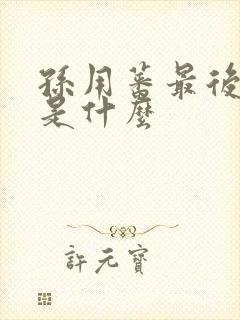 孫用蕃最後
是什麼
許元寶